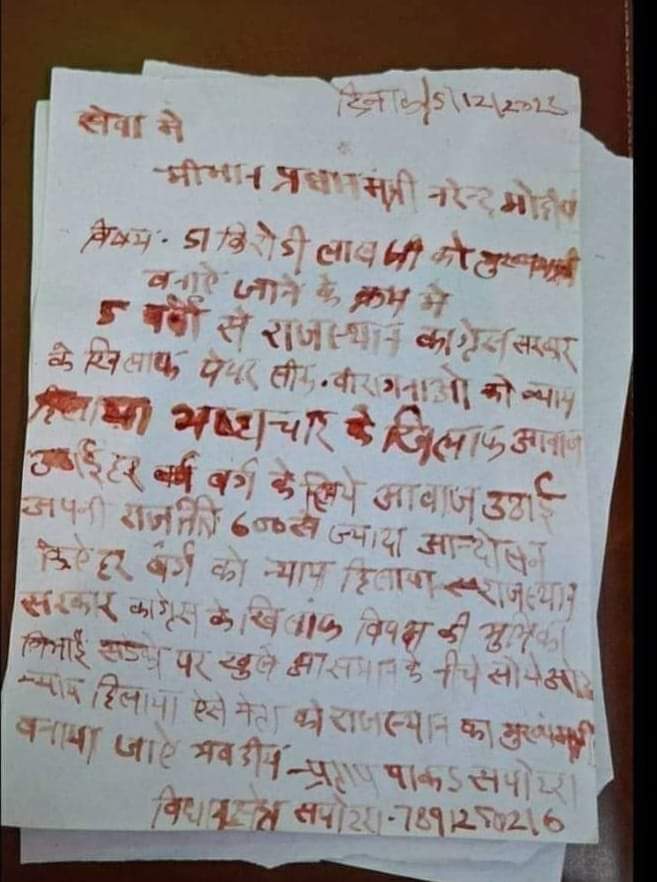 दिनांक 5/12/2023
सेवा मे
श्रीमान प्रधानमंत्री नरेन्द्र मोदी
विषय. डा किरोडी लाल जी को मुख्यमंत्री
बनाऐ जाने के क्रम मे
5 वर्षो से राजस्थान काग्रेस सरकार
के खिलाफ पेपर लीक. वीरागनाओ को न्याय
दिलाया भ्रष्टाचार के खिलाफ आवाज
उठाई हर वर्ग के लिये आवाज उठाई
अपनी राजनिति 600 से ज्यादा आन्दोलन
किऐ हर वर्ग को न्याय दिलाया राजस्थान
सरकार काग्रेस के खिलाफ विपक्ष की भुमिका
निभाई सडको पर खुले आसमान के नीचे सोये और
न्याय दिलाया ऐसे नेता को राजस्थान का मुख्यमंत्री
बनाया जाऐ भवदीय - सपोटरा
विधानसभा क्षेत्र सपोटरा.